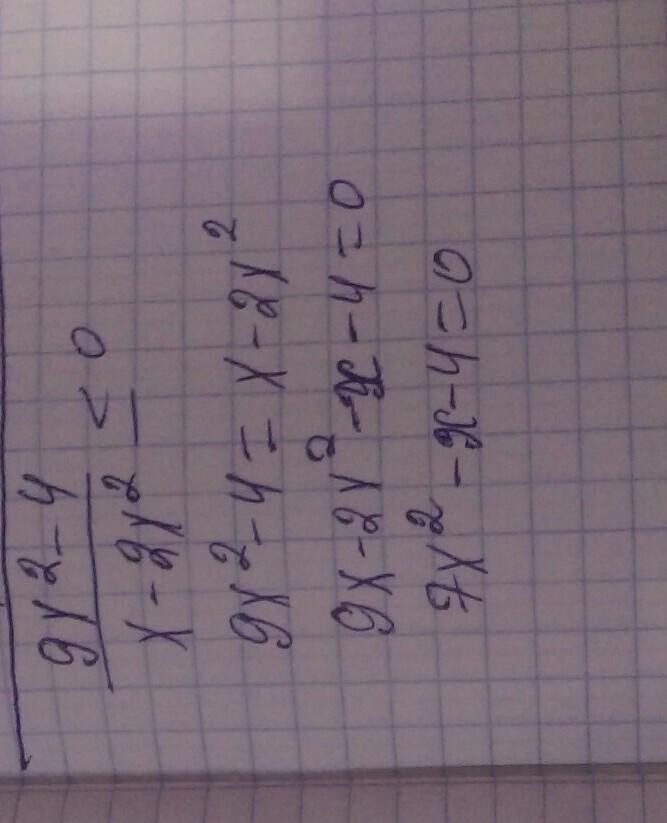 9x² - 4
x - 2x² ≤ 0
9x² - 4 = x - 2x²
9x - 2x² - x - 4 = 0
7x² - x - 4 = 0